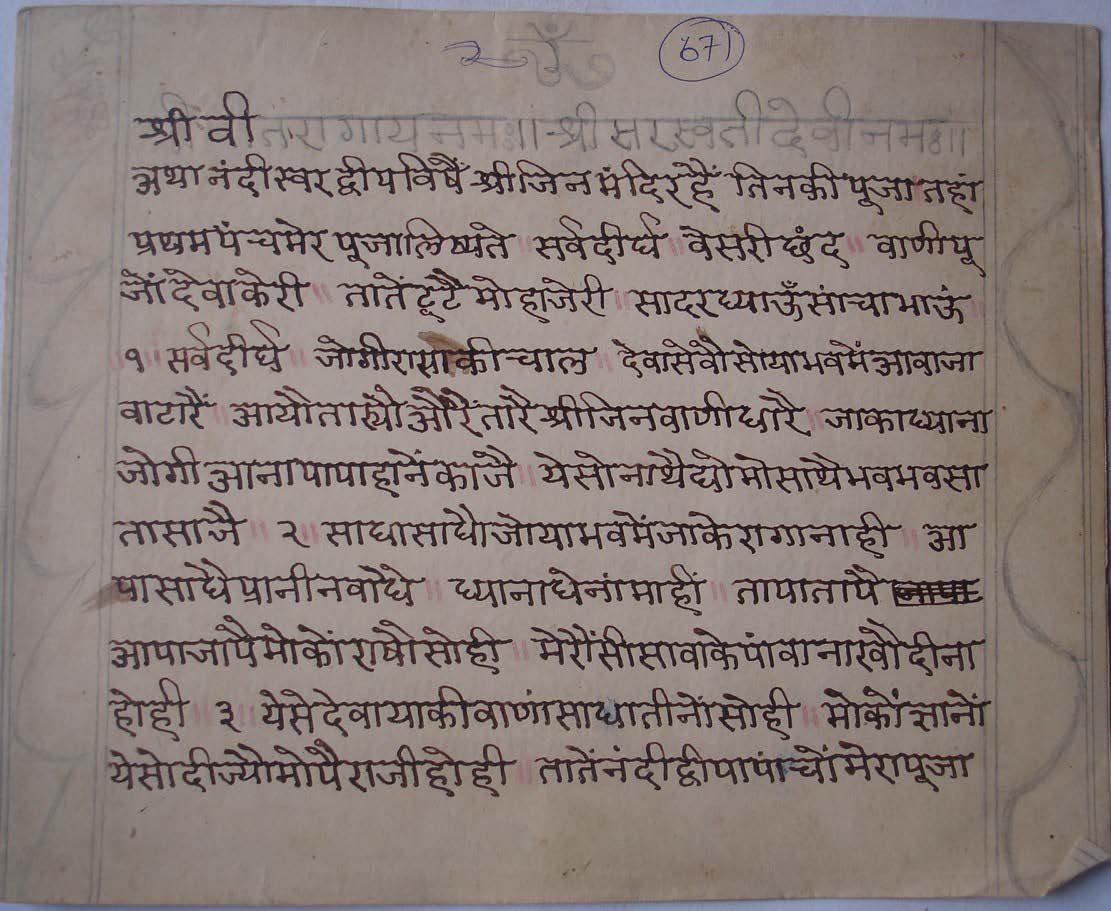 ॐ 671
श्री वीतरागाय नमः॥ श्री सरस्वती देवी नमः॥
अथा नंदीस्वर द्वीप विषैं श्री जिन मंदिर हैं तिनकी पूजा तहां
प्रथम पंचमेर पूजा लिष्यते ॥ सर्व दीर्घ ॥ वेसरी छंद ॥ वाणी पू
जों देवा केरी ॥ तातें टूटै मोहा जेरी ॥ सादर ध्याऊँ सांचा भाऊं
॥ १ ॥ सर्व दीर्घ ॥ जोगीरासा की चाल ॥ देवा सेवौ सो या भवमें आवा जा
वा टारैं ॥ आयौ तास्यौ औरैं तारै श्री जिन वाणी धारै ॥ जाका ध्याना
जोगी आना पापा हानें काजै ॥ येसो नाथै द्यो मो साथै भव भव सा
ता साजै ॥ २ ॥ साधा साधौ जो या भवमें जाके रागा नाही ॥ आ
पा साधै प्रानी न वोधे ॥ ध्याना धेनां माहीं ॥ तापा तापै
आपा जापै मोकों राषौ सोही ॥ मेरौं सीसा वाके पांवा नाखौ दीना
होही ॥ ३ ॥ येसे देवा याकी वाणां साधा तीनों सोही ॥ मोकों ज्ञानों
येसो दीज्यौ मोपै राजी होही ॥ तातें नंदी द्वीपा पांचों मेरा पूजा